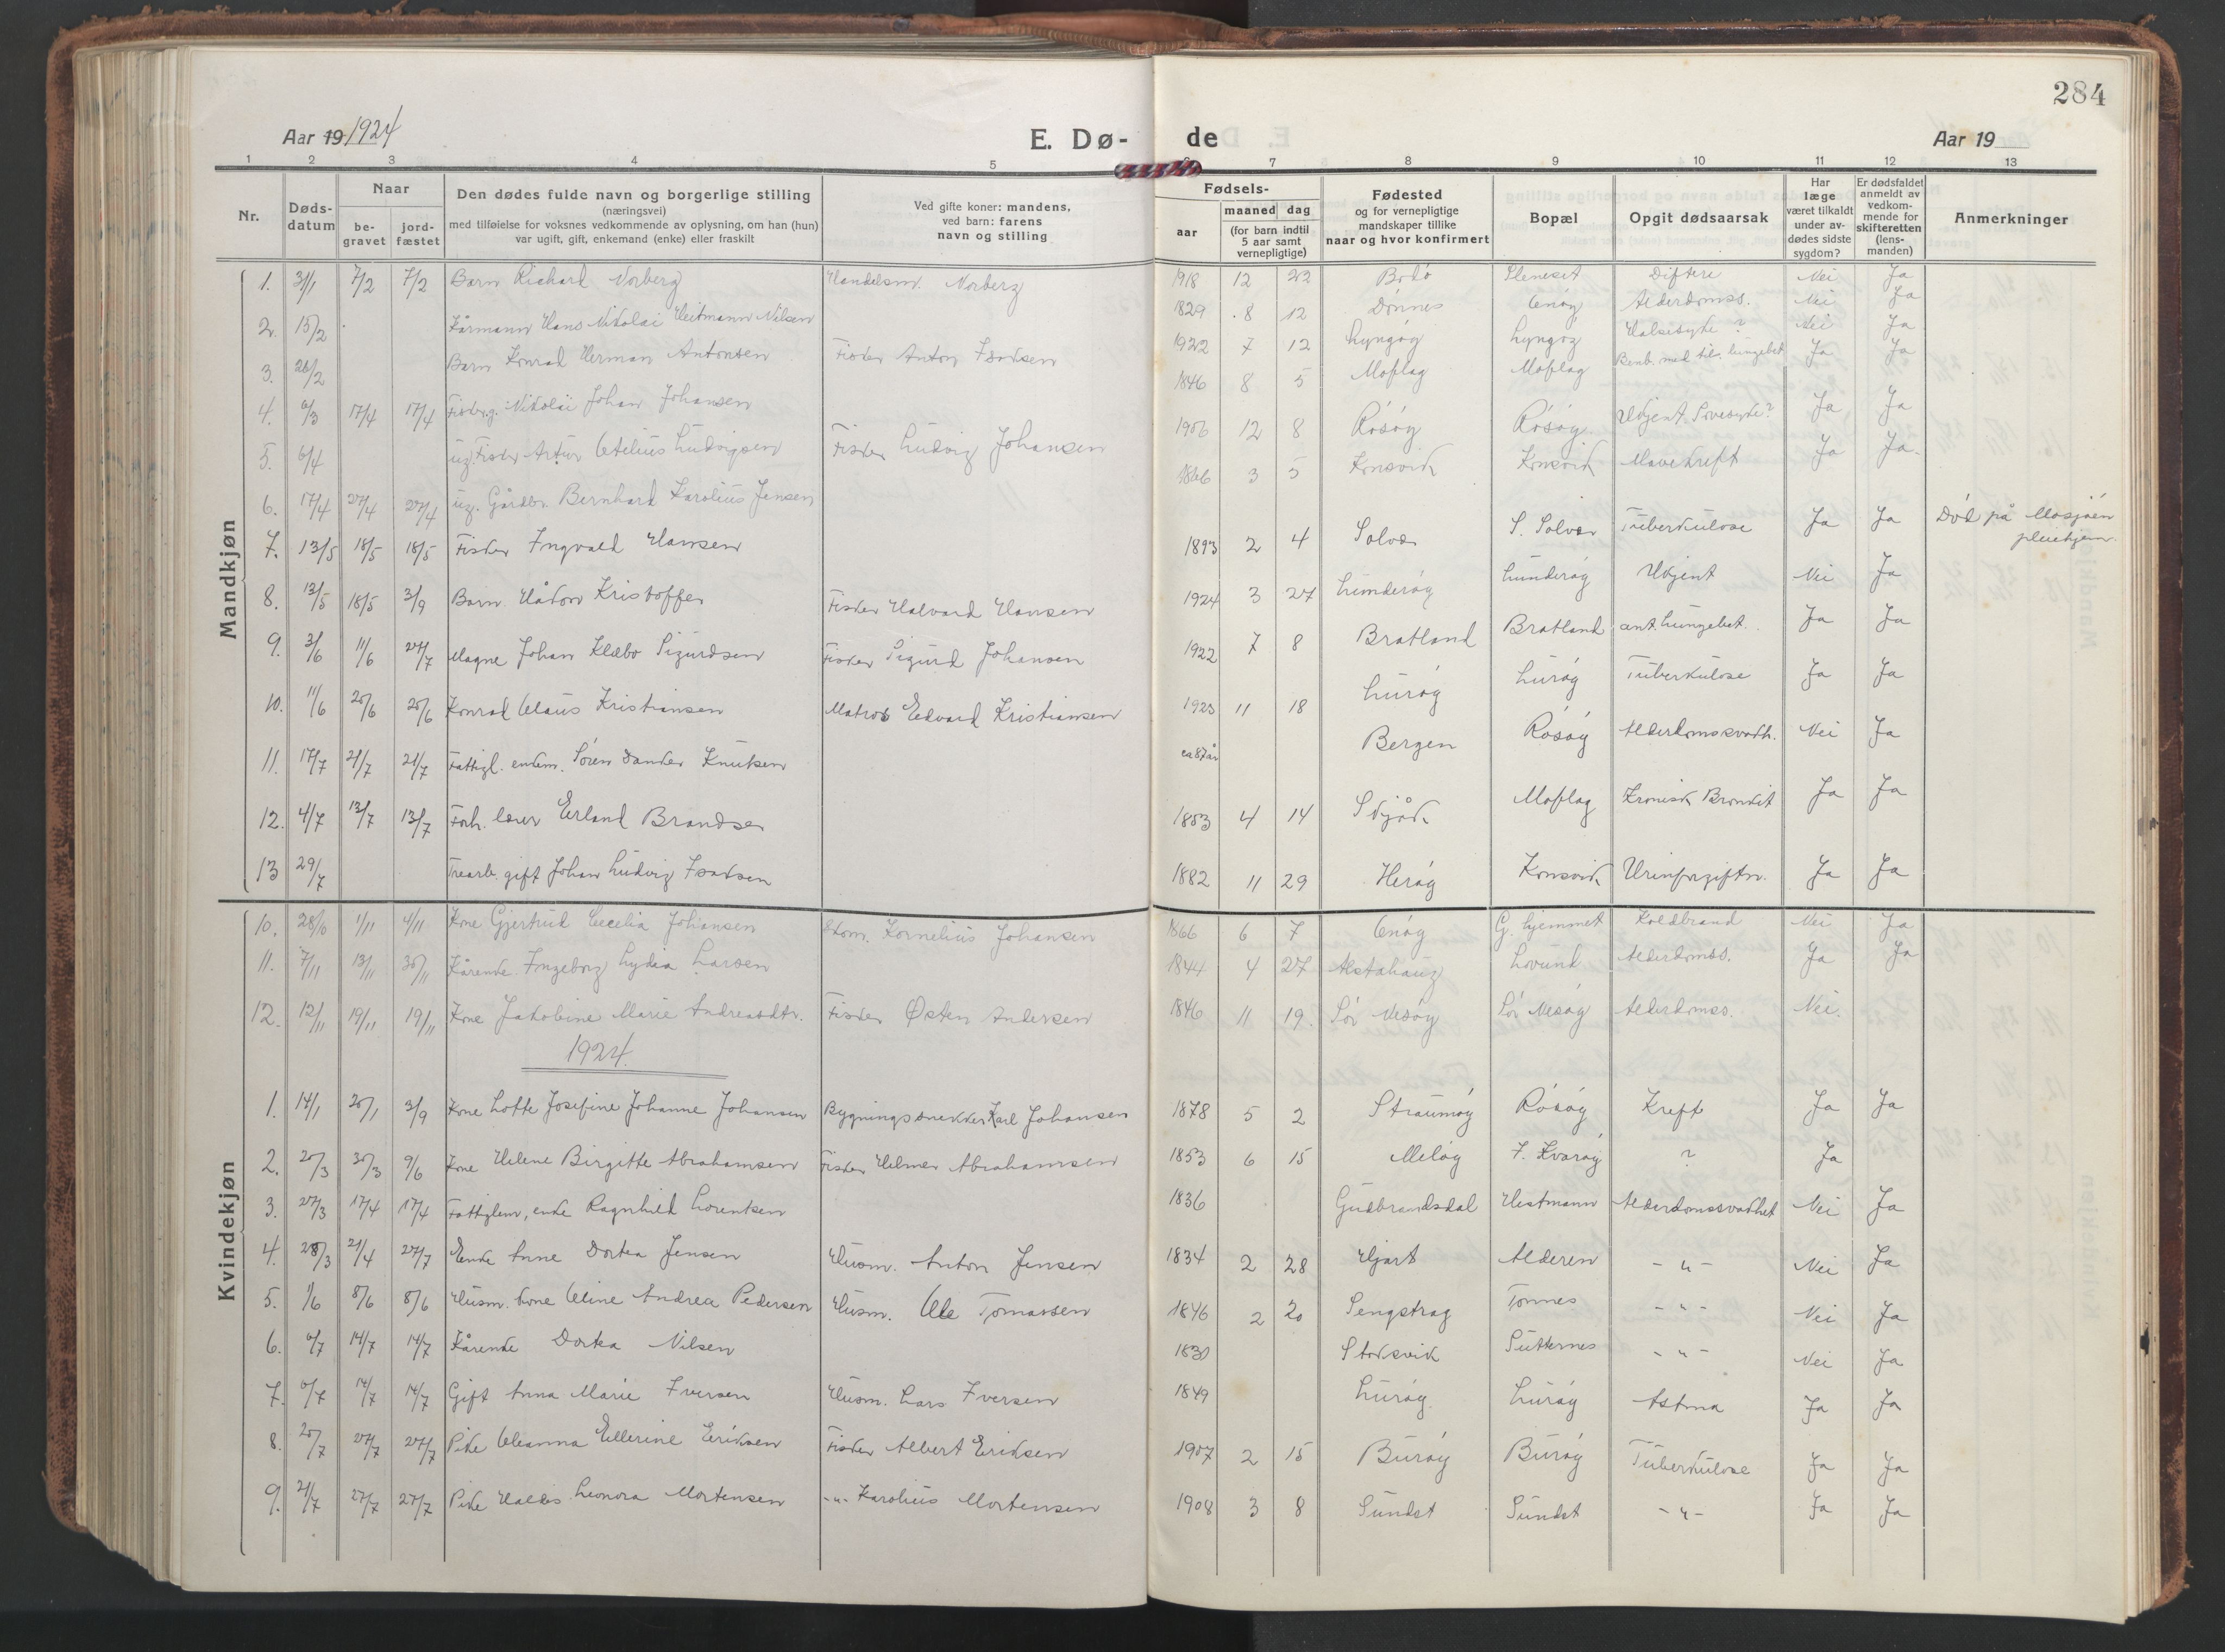 284
Aar 19 1924
E. Dø-
de
Aar 19
1 2 3 4 5 6 7 8 9 10 11 12 13
Nr.
Døds-
datum
Naar
be-
gravet
jord-
fæstet
Den dødes fulde navn og borgerlige stilling
(næringsvei)
med tilføielse for voksnes vedkommende av oplysning, om han (hun)
var ugift, gift, enkemand (enke) eller fraskilt
Ved gifte koner: mandens,
ved barn: farens
navn og stilling
Fødsels-
aar
maaned dag
(for barn indtil
5 aar samt
vernepligtige)
Fødested
og for vernepligtige
mandskaper tillike
naar og hvor konfirmert
Bopæl
Opgit dødsaarsak
Har
læge
været tilkaldt
under av-
dødes sidste
sygdom?
Er dødsfaldet
anmeldt av
vedkom-
mende for
skifteretten
(lens-
manden)
Anmerkninger
Mandkjøn
1. 31/1 7/2 7/2 Barn Richard Norberg Handelsm. Norberg 1918 12 22 Bodø Steneset Difteri Nei Ja
2. 15/2 Kårmann Hans Nikolai Heitmann Nilsen 1829 8 12 Dønnes Enøg Alderdomss. Nei Ja
3. 26/2 Barn Konrad Herman Antonsen Fisker Anton Isaksen 1922 7 12 Lyngøy Lyngøy Halsesyke? Nei Ja
4. 6/3 17/4 17/4 Fisker g. Nikolai Johan Johansen 1846 8 5 Moflag Moflag Benb. med til. lungebet Ja Ja
5. 6/4 ug. Fisker Artur Otelius Ludvigsen Fisker Ludvig Johansen 1906 12 8 Rósøy Rósøy Ukjent Sovesyke? Ja Ja
6. 17/4 27/4 27/4 ug. Gårdbr. Bernhard Karolius Jensen 1866 3 5 Konsvik Konsvik Mavekreft Ja Ja
7. 13/5 18/5 18/5 Fisker Ingvald Hansen 1893 2 4 Solvær S. Solvær Tuberkulose Ja Ja Død på Mosjøen pleiehjem.
8. 13/5 18/5 3/9 Barn Håkon Kristoffer Fisker Halvard Hansen 1924 3 27 Lunderøy Lunderøy Ukjent Nei Ja
9. 3/6 11/6 27/7 Magne Johan Klæbo Sigurdsen Fisker Sigurd Johansen 1922 7 8 Bratland Bratland ant. lungebet. Ja Ja
10. 11/6 20/6 20/6 Konrad Claus Kristiansen Matros Edvard Kristiansen 1923 11 18 Lurøy Lurøy Tuberkulose Ja Ja
11. 17/7 21/7 21/7 Fattigl. enkem. Søren Sander Knutsen ca 87 år Bergen Rósøy Alderdomssvakh. Nei Ja
12. 4/7 13/7 13/7 Forh. lærer Erland Brandser 1853 4 14 Skjåk Moflag Kronisk Bronkit Ja Ja
13 29/7 Trearb. gift Johan Ludvig Isaksen 1882 11 29 Herøy Konsvik Urinforgiftn. Ja Ja
Kvindekjøn
10. 28/10 1/11 4/11 Kone Gjertrud Cecelia Johansen Kornelius Johansen 1866 6 7 Enøg G. hjemmet Koldbrand Nei Ja
11. 7/11 13/11 30/11 Kårenke Ingeborg Lydia Larsen 1844 4 27 Alstahaug Lovund Alderdomss. Ja Ja
12. 12/11 19/11 19/11 Kone Jakobine Marie Andreasdtr. Fisker Østen Andersen 1846 11 19 Sör Nesøy Sör Nesøy Alderdomss. Nei.
1924
1. 14/1 20/1 3/9 Kone Lotte Josefine Johanne Johansen Bygningssnekker Karl Johansen 1878 5 2 Straumøy Rósøy Kreft Ja Ja
2. 20/3 30/3 9/6 Kone Helene Birgitte Abrahamsen Fisker Helmer Abrahamsen 1853 6 15 Meløy I. Kvarøy ? Ja
3. 27/3 17/4 17/4 Fattiglem, enke Ragnhild Lorentsen 1836 Gudbrandsdal Hestmann Alderdomssvakhet Nei Ja
4. 28/3 21/4 27/7 Enke Anne Dortea Jensen Husm. Anton Jensen 1834 2 28 Hjart Alderen - " - Nei Ja
5. 1/6 8/6 8/6 Husm. kone Oline Andrea Pedersen Husm. Ole Tomassen 1846 2 20 Sengskrog Tonnes - " - Nei Ja
6. 6/7 14/7 14/7 Kårenke Dortea Nilsen 1830 Stoksvik Sutternes - " - Nei Ja
7. 6/7 14/7 14/7 Gift Anna Marie Iversen Husm. Lars Iversen 1849 Lurøy Lurøy Astma Ja Ja
8. 20/7 27/7 27/7 Pike Oleanna Ellerine Eriksen Fisker Albert Eriksen 1907 2 15 Burøy Burøy Tuberkulose Ja Ja
9. 21/7 27/7 27/7 Pike Haldis Leonora Mortensen - " - Karolius Mortensen 1908 3 8 Sundst Sundst - " - Ja Ja